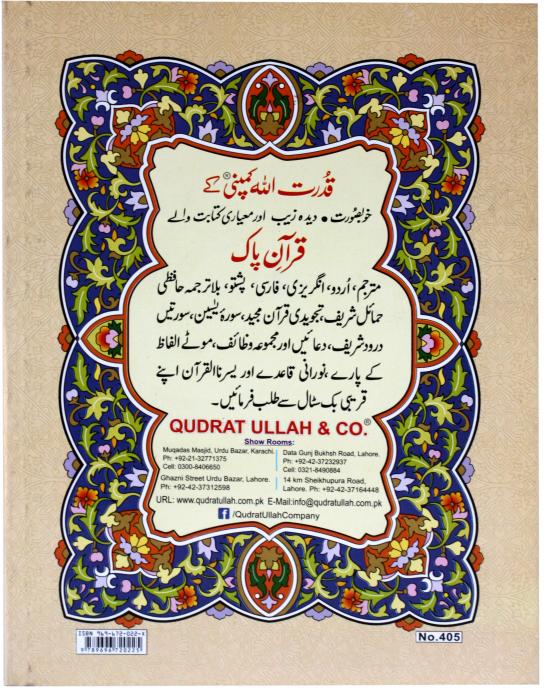 قُدرت اللہ کمپنی® کے
خوبصُورت • دیدہ زیب اور معیاری کتابت والے
قرآنِ پاک
مترجم، اُردو، انگریزی، فارسی، پشتو، بلا ترجمہ حافظی
حمائل شریف، تجویدی قرآن مجید، سورۂ یٰسین، سورتیں
درود شریف، دعائیں اور مجموعہ وظائف، موٹے الفاظ
کے پارے، نورانی قاعدے اور یسرنا القرآن اپنے
قریبی بک سٹال سے طلب فرمائیں۔
QUDRAT ULLAH & CO.®
Show Rooms:
Muqadas Masjid, Urdu Bazar, Karachi.
Ph: +92-21-32771375
Cell: 0300-8406650
Data Gunj Bukhsh Road, Lahore.
Ph: +92-42-37232937
Cell: 0321-8490884
Ghazni Street Urdu Bazar, Lahore.
Ph: +92-42-37312598
14 km Sheikhupura Road,
Lahore. Ph: +92-42-37164448
URL: www.qudratullah.com.pk E-Mail:info@qudratullah.com.pk
f /QudratUllahCompany
ISBN 969-672-022-X
9 789696 720225
No.405